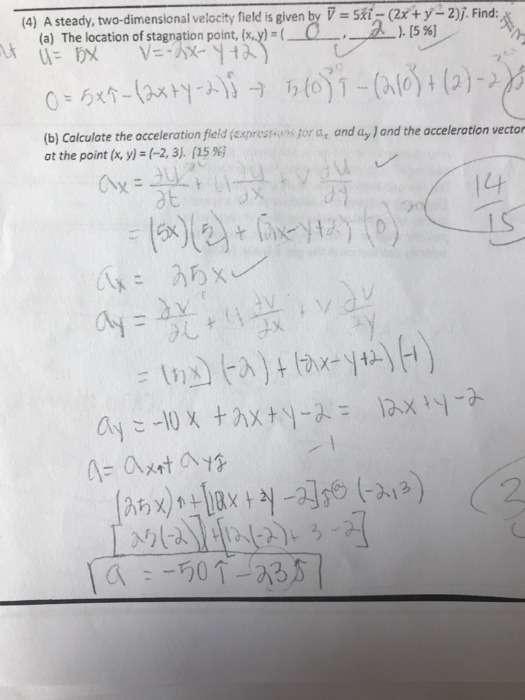 (4) A steady, two-dimensional velocity field is given by V⃗ = 5xî − (2x + y − 2)ĵ. Find:
(a) The location of stagnation point, (x, y) = ( 0 , 2 ). [5 %]
u = 5x   v = -2x - y + 2)
0 = 5xî - (2x+y-2)ĵ → 5(0)î - (2(0) + (2) - 2)ĵ
(b) Calculate the acceleration field (expressions for aₓ and a_y) and the acceleration vector
at the point (x, y) = (−2, 3). [15 %]
ax = ∂u/∂t + u ∂u/∂x + v ∂u/∂y ✓
14/15
= (5x)(5) + (-2x-y+2)(0)
ax = 25x ✓
ay = ∂v/∂t + u ∂v/∂x + v ∂v/∂y
= (5x)(-2) + (-2x-y+2)(-1)
ay = -10x + 2x + y - 2 = 12x + y - 2
-1
a = axî + ayĵ
(25x)î + [12x + y - 2]ĵ @ (-2,3)
[25(-2)] + [12(-2) + 3 - 2]
a = -50î - 23ĵ